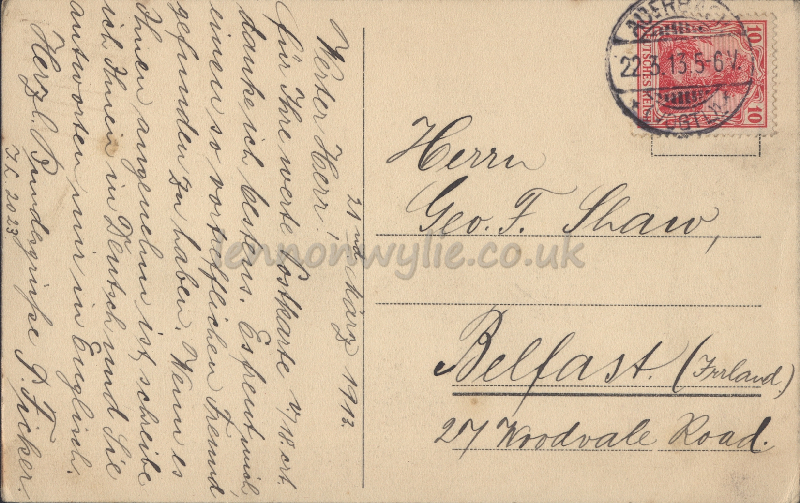 21nd März 1913.
Werter Herr!
für Ihre werte Postkarte v/18. ort.
danke ich bestens. Es freut mich
einen so vortrefflichen Freund
gefunden zu haben. Wenn es
Ihnen angenehm ist, schreibe
ich Ihnen in Deutsch und Sie
antworten mir in Englisch.
Herzl. Bundesgrüße P. Ficker.
I.L. 2023
22.3.13.5-6V.
DEUTSCHES REICH
10 10
Herrn
Geo. F. Shaw,
Belfast. (Irrland.)
27 Woodvale Road.
lennonwylie.co.uk